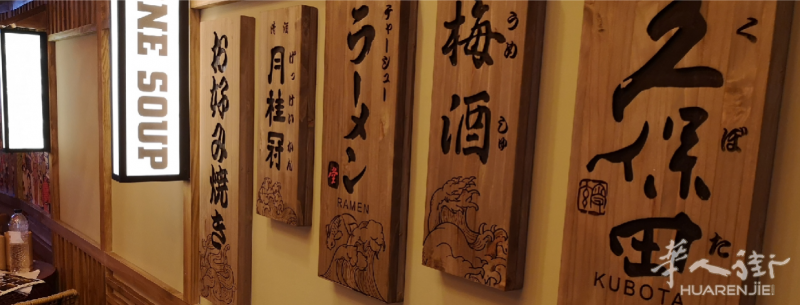 NE SOUP
お好み焼き
清酒
月桂冠
げっけいかん
ラーメン
チャーシュー
RAMEN
梅酒
うめ
しゅ
久保田
くぼた
KUBOTA
華人街
HUARENJIE